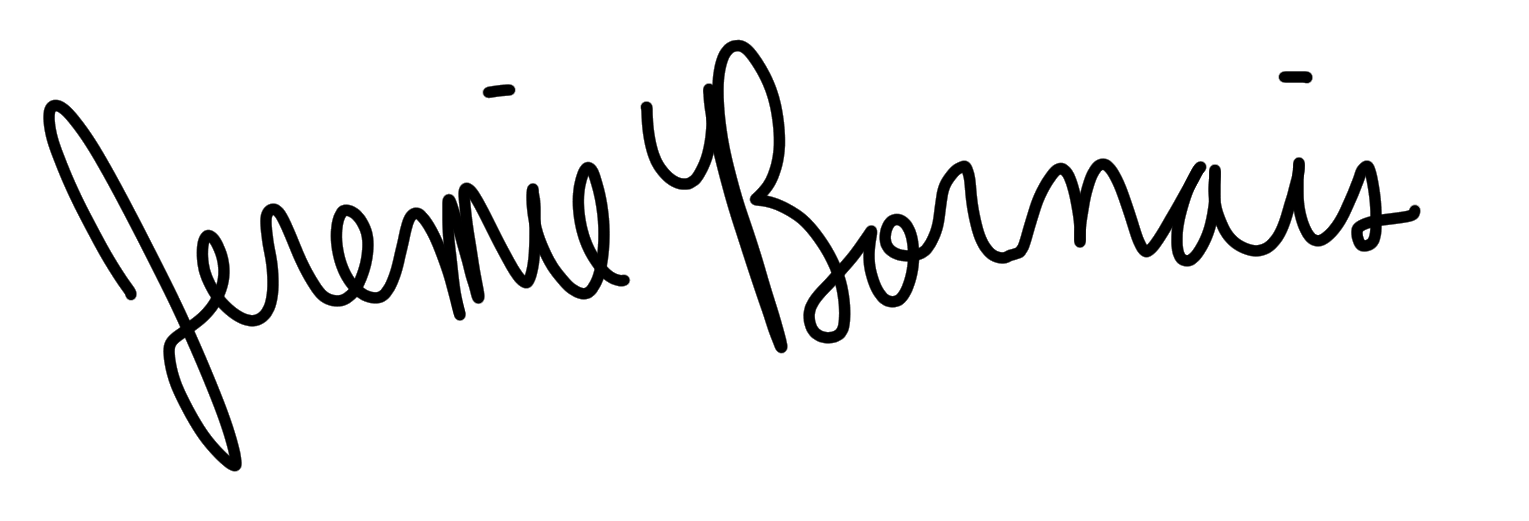 Jeremie Bornais